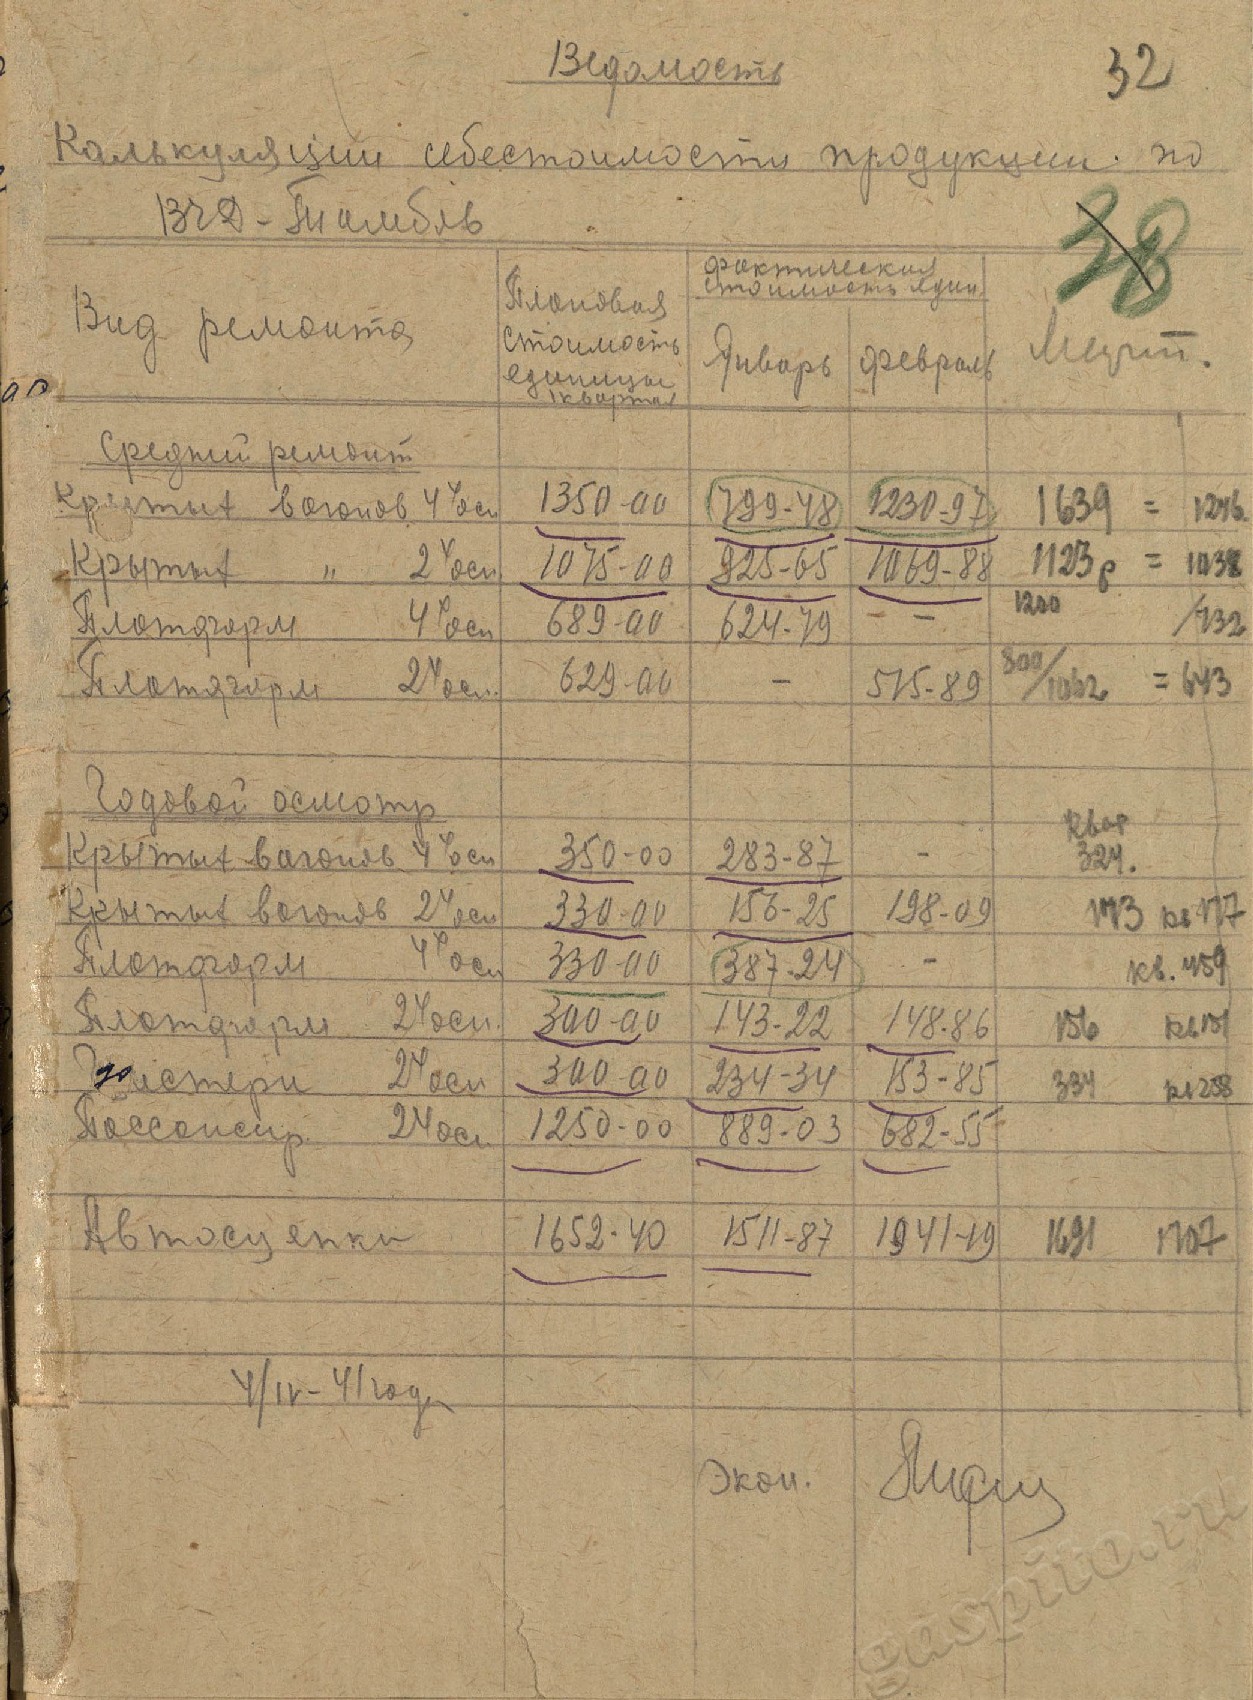 Ведомость 32
Калькуляции себестоимости продукции по
ВЧД-Тамбов
38
Вид ремонта Плановая стоимость единицы 1 квартал Фактическая стоимость един. Январь Февраль
Средний ремонт
Крытых вагонов 4х осн 1350-00 799-48 1230-97 1639 = 1246
Крытых " 2х осн 1075-00 925-65 1069-88 1123р = 1038
Платформ 4х осн 689-00 624-79 - 1200 /732
Платформ 2х осн. 629-00 - 515-89 800/1062 = 643
Годовой осмотр
Крытых вагонов 4х осн 350-00 283-87 - квар 324.
Крытых вагонов 2х осн 330-00 156-25 198-09 173 кв 177
Платформ 4х осн 330-00 387-24 - кв. 459
Платформ 2х осн. 300-00 143-22 148-86 156 кв 151
Цистерн 2х осн 300-00 234-34 153-85 334 кв 258
Пассажир. 2х осн. 1250-00 889-03 682-55
Автосцепки 1652-40 1511-87 1941-19 1691 1707
4/IV-41 года
Экон.
gaspito.ru